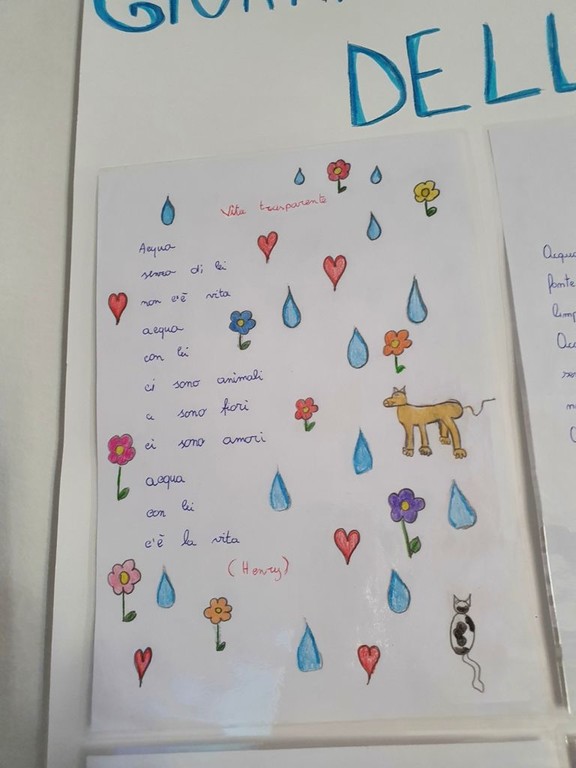 DELL
Vita trasparente
Acqua
senza di lei
non c'è vita
acqua
con lei
ci sono animali
ci sono fiori
ci sono amori
acqua
con lei
c'è la vita
(Henry)
Acqua
fonte
limp